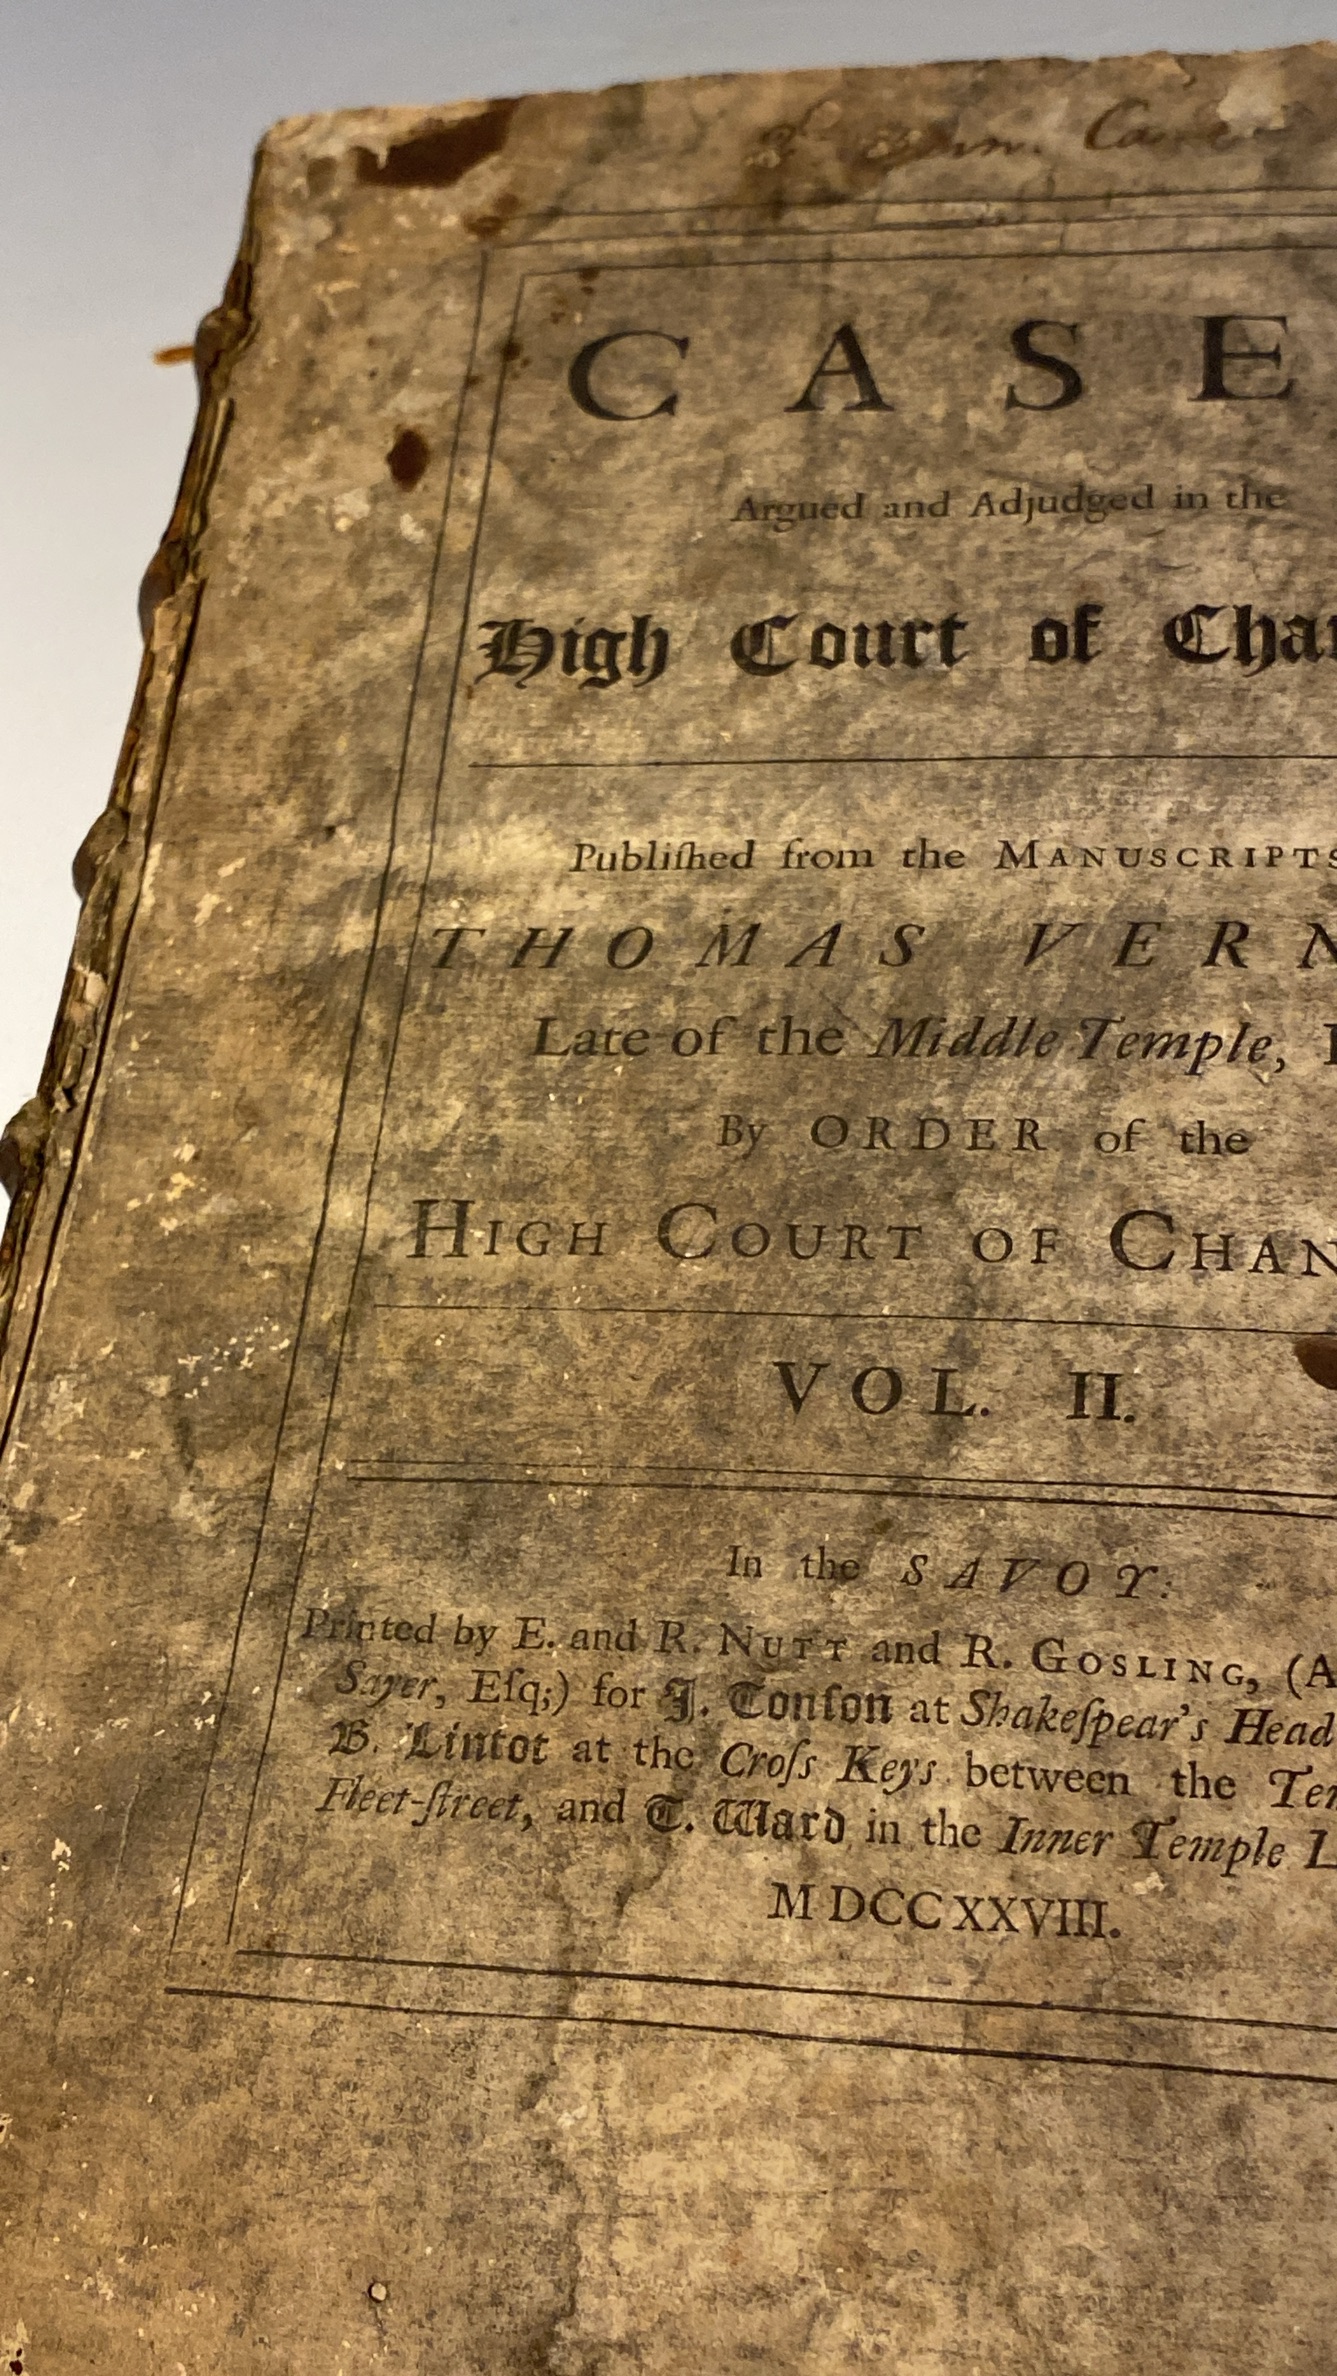 CASE
Argued and Adjudged in the
High Court of Chan
Publiſhed from the MANUSCRIPTS
THOMAS VERN
Late of the Middle Temple,
By ORDER of the
HIGH COURT OF CHAN
VOL. II.
In the SAVOY:
Printed by E. and R. NUTT and R. GOSLING, (A
Sayer, Eſq;) for J. Tonſon at Shakeſpear's Head
B. Lintot at the Croſs Keys between the Tem
Fleet-ſtreet, and T. Ward in the Inner Temple L
MDCCXXVIII.